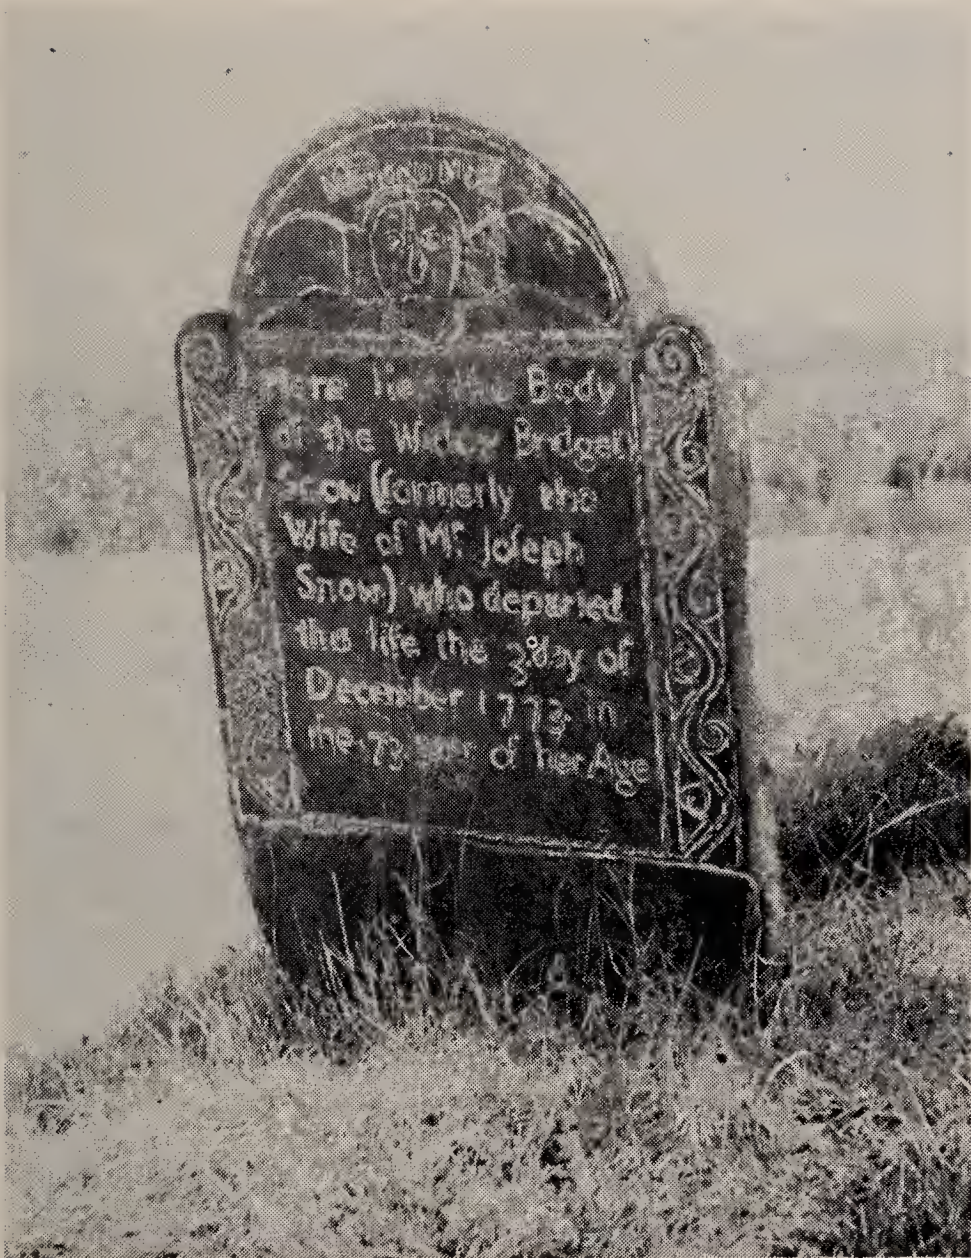 Here lies the Body
of the Widow Bridget
Snow (formerly the
Wife of Mr. Joſeph
Snow) who departed
this life the 3d. day of
December 1773 in
the 73 year of her Age